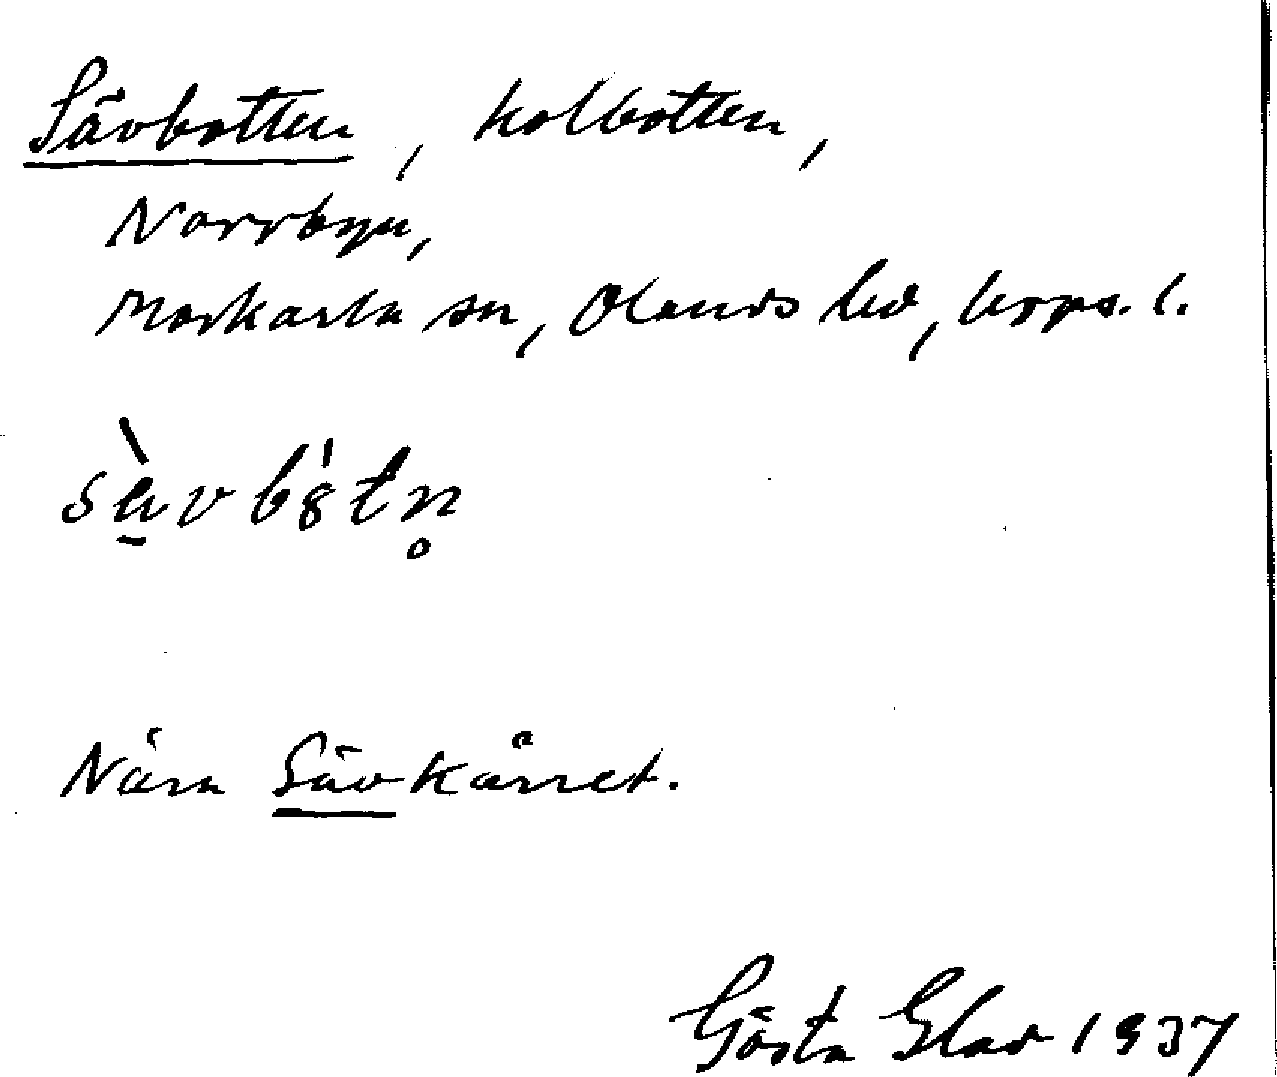 Sävbotten, kolbotten,
Norrbyn,
Morkarla sn, Olands hd, Upps. l.
Nära Sävkärret.
Gösta Glad 1937